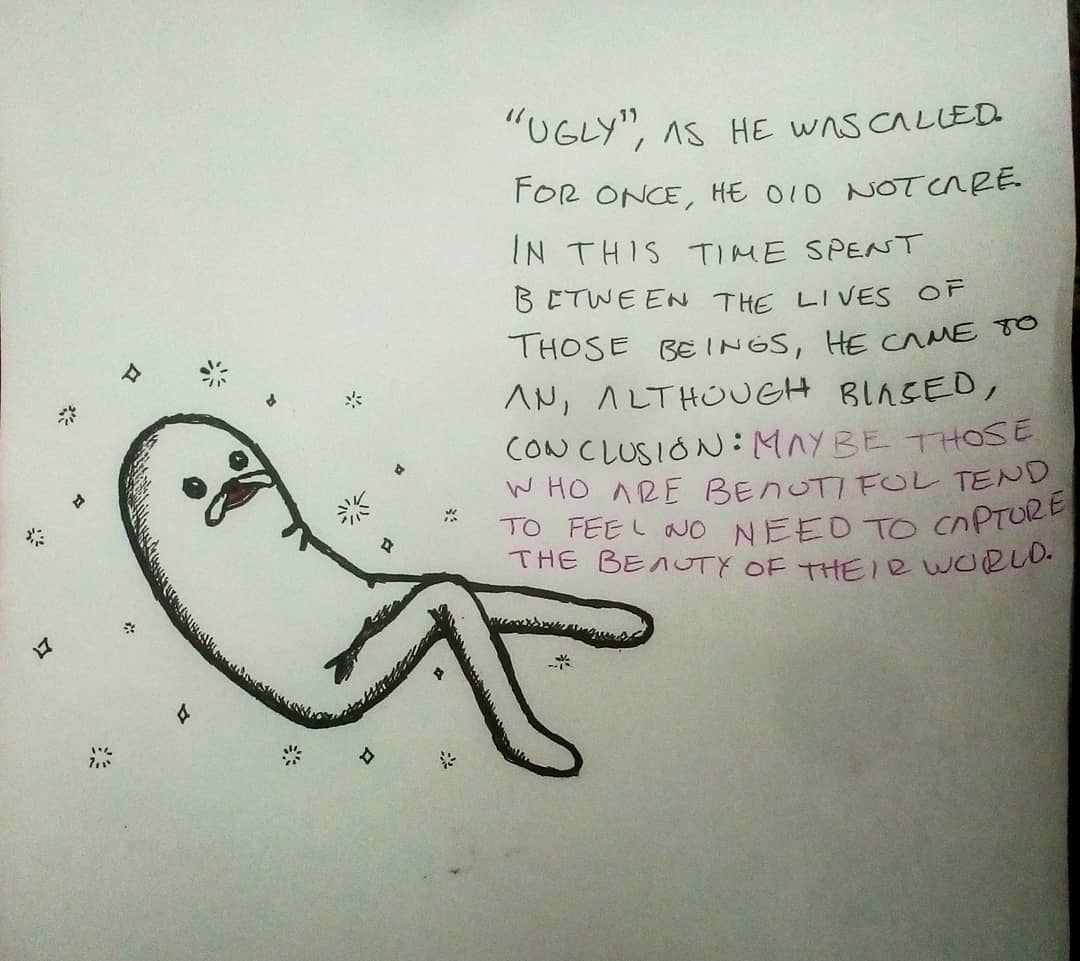 "UGLY", AS HE WAS CALLED.
FOR ONCE, HE DID NOT CARE.
IN THIS TIME SPENT
BETWEEN THE LIVES OF
THOSE BEINGS, HE CAME TO
AN, ALTHOUGH BIASED,
CONCLUSION: MAYBE THOSE
WHO ARE BEAUTIFUL TEND
TO FEEL NO NEED TO CAPTURE
THE BEAUTY OF THEIR WORLD.